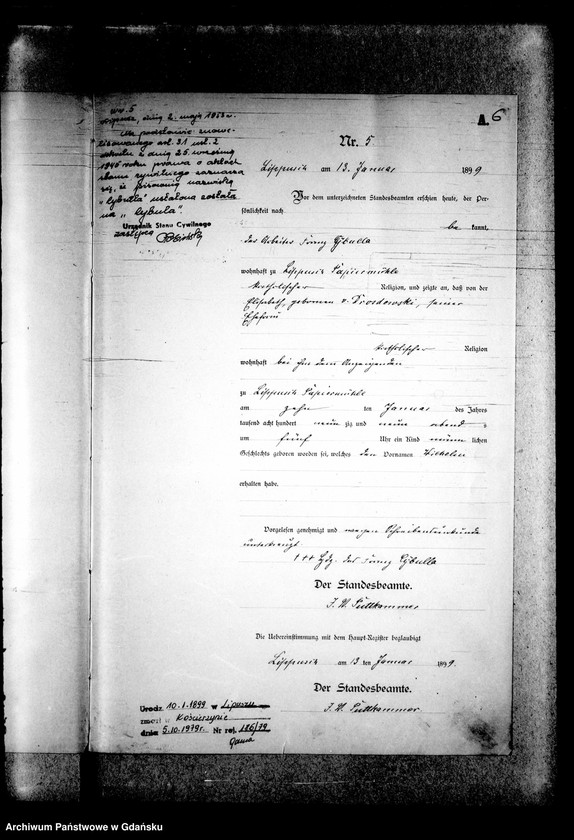 ww. 5
Lipusz, dnia 2. maja 1953 r.
Na podstawie znowe-
lizowanego art. 31 ust. 2
dekretu z dnia 25 września
1945 roku prawa o aktach
stanu cywilnego zaznacza
się, iż pisownia nazwiska
"Cybulla" ustalona została
na "Cybula".
Urzędnik Stanu Cywilnego
zastępca
A. 6
Nr. 5
Lippusch am 13. Januar 1899
Vor dem unterzeichneten Standesbeamten erschien heute, der Per-
sönlichkeit nach
be kannt,
der Arbeiter Franz Cybulla
wohnhaft zu Lippusch Papiermühle
katholischer Religion, und zeigte an, daß von der
Elisabeth, geborenen v. Drosdowski, seiner
Ehefrau
katholischer Religion
wohnhaft bei ihm dem Anzeigenden
zu Lippusch Papiermühle
am zehn ten Januar des Jahres
tausend acht hundert neun zig und neun abend s
um fünf Uhr ein Kind männ lichen
Geschlechts geboren worden sei, welches den Vornamen
erhalten habe.
Vorgelesen genehmigt und wegen Schreibensunkunde
unterkreuzt.
+++ Hdz. des Franz Cybulla
Der Standesbeamte.
J. V. Puttkammer
Die Uebereinstimmung mit dem Haupt-Register beglaubigt
Lippusch am 13 ten Januar 1899.
Der Standesbeamte.
J. V. Puttkammer.
Urodz. 10.1.1899 w Lipuszu
zmarł w Kościerzynie
dnia 5.10.1979r. Nr rej. 186/79
Archiwum Państwowe w Gdańsku